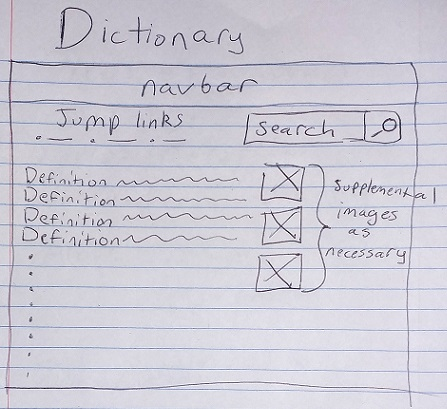 Dictionary
navbar
Jump links
Search
Definition
Definition
Definition
Definition
Supplemental
images
as
necessary